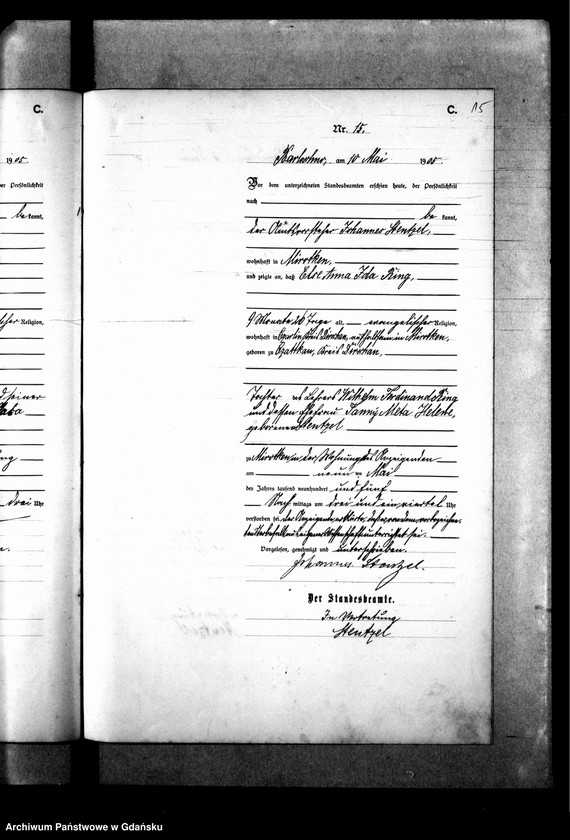 C.
1905
er Persönlichkeit
be kannt,
Religion,
drei Uhr
C. 15
Nr. 15.
am 10 Mai 1905.
Vor dem unterzeichneten Standesbeamten erschien heute, der Persönlichkeit
nach
be kannt,
der Johannes Stentzel,
wohnhaft in Mirotken,
und zeigte an, daß Else Anna Ida Ring,
9 Monate 20 Tage alt, evangelischer Religion,
wohnhaft in aufhaltsam in Mirotken,
geboren zu Czattkau, Kreis Dirschau,
Tochter des Lehrers Wilhelm Ferdinand Ring
und dessen Ehefrau Fanny Meta Helene,
geborenen Stentzel
zu Mirotken in der Wohnung des Anzeigenden
am neunten Mai
des Jahres tausend neunhundert und fünf
Nach mittags um drei und ein viertel Uhr
verstorben sei, der Anzeigende erklärte, daß er von dem vorbezeichne-
ten Sterbefalle aus eigener Wissenschaft unterrichtet sei.
Vorgelesen, genehmigt und unterschrieben.
Johannes Stentzel.
Der Standesbeamte.
In Vertretung
Stentzel
Archiwum Państwowe w Gdańsku